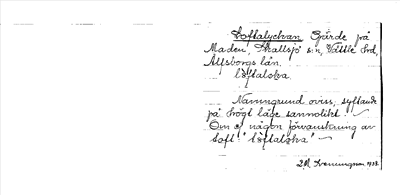 Loftalyckan Gärde på
Maden, Skallsjö s:n, Vättle hd,
Älfsborgs län.
löftaloka.
Namngrund oviss, syftande
på högt läge sannolikt.
Om ej någon förvanskning av
loft! löftaloka